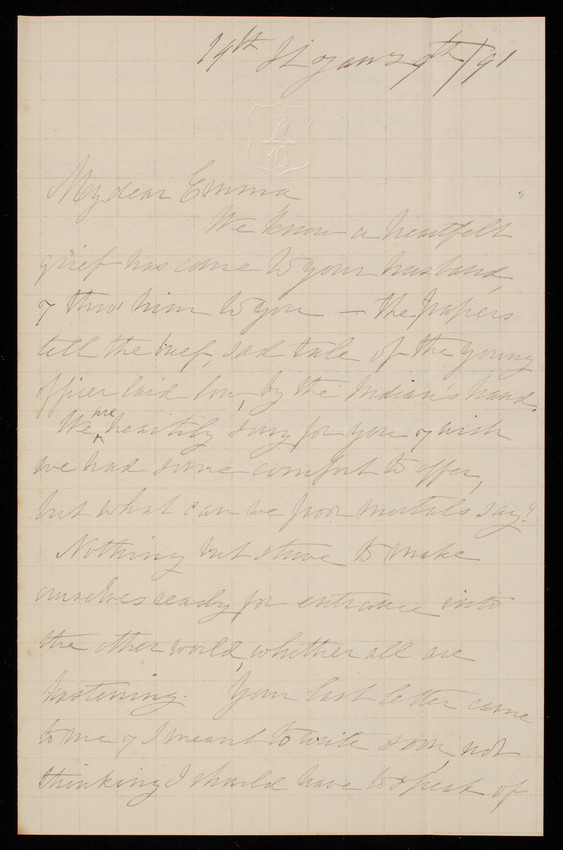 19th St Jany 9th/91
My dear Emma
We know a heartfelt
grief has come to your husband,
& thro' him to you — the papers
tell the brief, sad tale of the young
officer laid low, by the Indian's hand.
We are heartily sorry for you & wish
we had some comfort to offer,
but what can we poor mortals say?
Nothing but strive to make
ourselves ready for entrance into
the other world, whither all are
hastening. Your last letter came
to me & I meant to write soon, not
thinking I should have to speak of